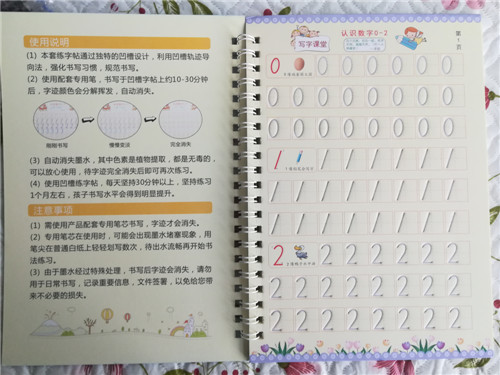 使用说明
(1) 本套练字帖通过独特的凹槽设计，利用凹槽轨迹导
向法，强化书写习惯，规范书写。
(2) 使用配套专用笔，书写于凹槽字帖上约10-30分钟
后，字迹颜色会分解挥发，自动消失。
刚刚书写
慢慢变淡
完全消失
(3) 自动消失墨水，其中色素是植物提取，都是无毒的，
可以放心使用，待字迹完全消失后即可再次练习。
(4) 使用凹槽练字帖，每天坚持30分钟以上，坚持练习
1个月左右，孩子书写水平会得到明显提升。
注意事项
(1) 需使用产品配套专用笔芯书写，字迹才会消失。
(2) 专用笔芯在使用时，可能会出现墨水堵塞现象，用
笔尖在普通白纸上轻轻划写数次，待出水流畅再开始书
法练习。
(3) 由于墨水经过特殊处理，书写后字迹会消失，请勿
用于日常书写，记录重要信息，文件签署，以免给您带
来不必要的损失。
写字课堂
认识数字0-2
第
1
页
0
0 0 0 0 0 0
0 0 0 0 0 0 0 0
0 0 0 0 0 0 0 0
1
1 1 1 1 1 1
1 1 1 1 1 1 1 1
1 1 1 1 1 1 1 1
2
2 2 2 2 2 2
2 2 2 2 2 2 2 2
2 2 2 2 2 2 2 2